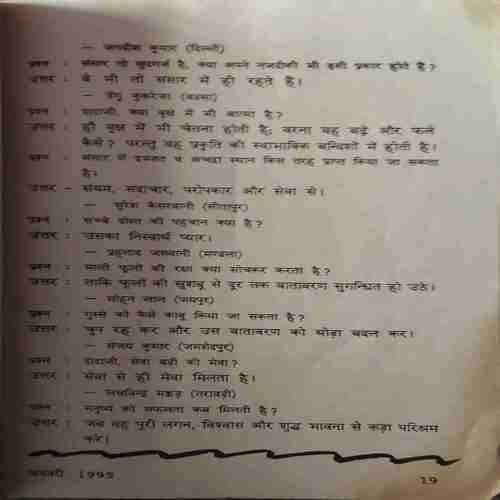 — जगदीश कुमार (दिल्ली)
प्रश्न : संसार तो खुदगर्ज है, क्या अपने नजदीकी भी इसी प्रकार होते है?
उत्तर : वे भी तो संसार में ही रहते है।
— वेणु कुकरेजा (बड़सा)
प्रश्न : दादाजी, क्या वृक्ष में भी आत्मा है?
उत्तर : हाँ वृक्ष में भी चेतना होती है, वरना वह बढ़े और फले
कैसे? परन्तु वह प्रकृति की स्वाभाविक बन्दिशों में होती है।
प्रश्न : संसार से इज्जत व अच्छा स्थान किस तरह प्राप्त किया जा सकता
है।
उत्तर - संयम, सदाचार, परोपकार और सेवा से।
— सुरेश केसरवानी (सीतापुर)
प्रश्न : सच्चे दोस्त की पहचान क्या है?
उत्तर : उसका निस्वार्थ प्यार।
— प्रहलाद जसवानी (मण्डला)
प्रश्न : माली फूलों की रक्षा क्या सोचकर करता है?
उत्तर : ताकि फूलों की खुशबु से दूर तक वातावरण सुगन्धित हो उठे।
— मोहन लाल (जयपुर)
प्रश्न : गुस्से को कैसे काबू किया जा सकता है?
उत्तर : चुप रह कर और उस वातावरण को थोड़ा बदल कर।
— संजय कुमार (जमशेदपुर)
प्रश्न : दादाजी, सेवा बड़ी की मेवा?
उत्तर : सेवा से ही मेवा मिलता है।
— लखविन्द्र मक्कड़ (तरावड़ी)
प्रश्न : मनुष्य को सफलता कब मिलती है?
उत्तर : जब वह पूरी लगन, विश्वास और शुद्ध भावना से कड़ा परिश्रम
करे।
जनवरी 1995
19